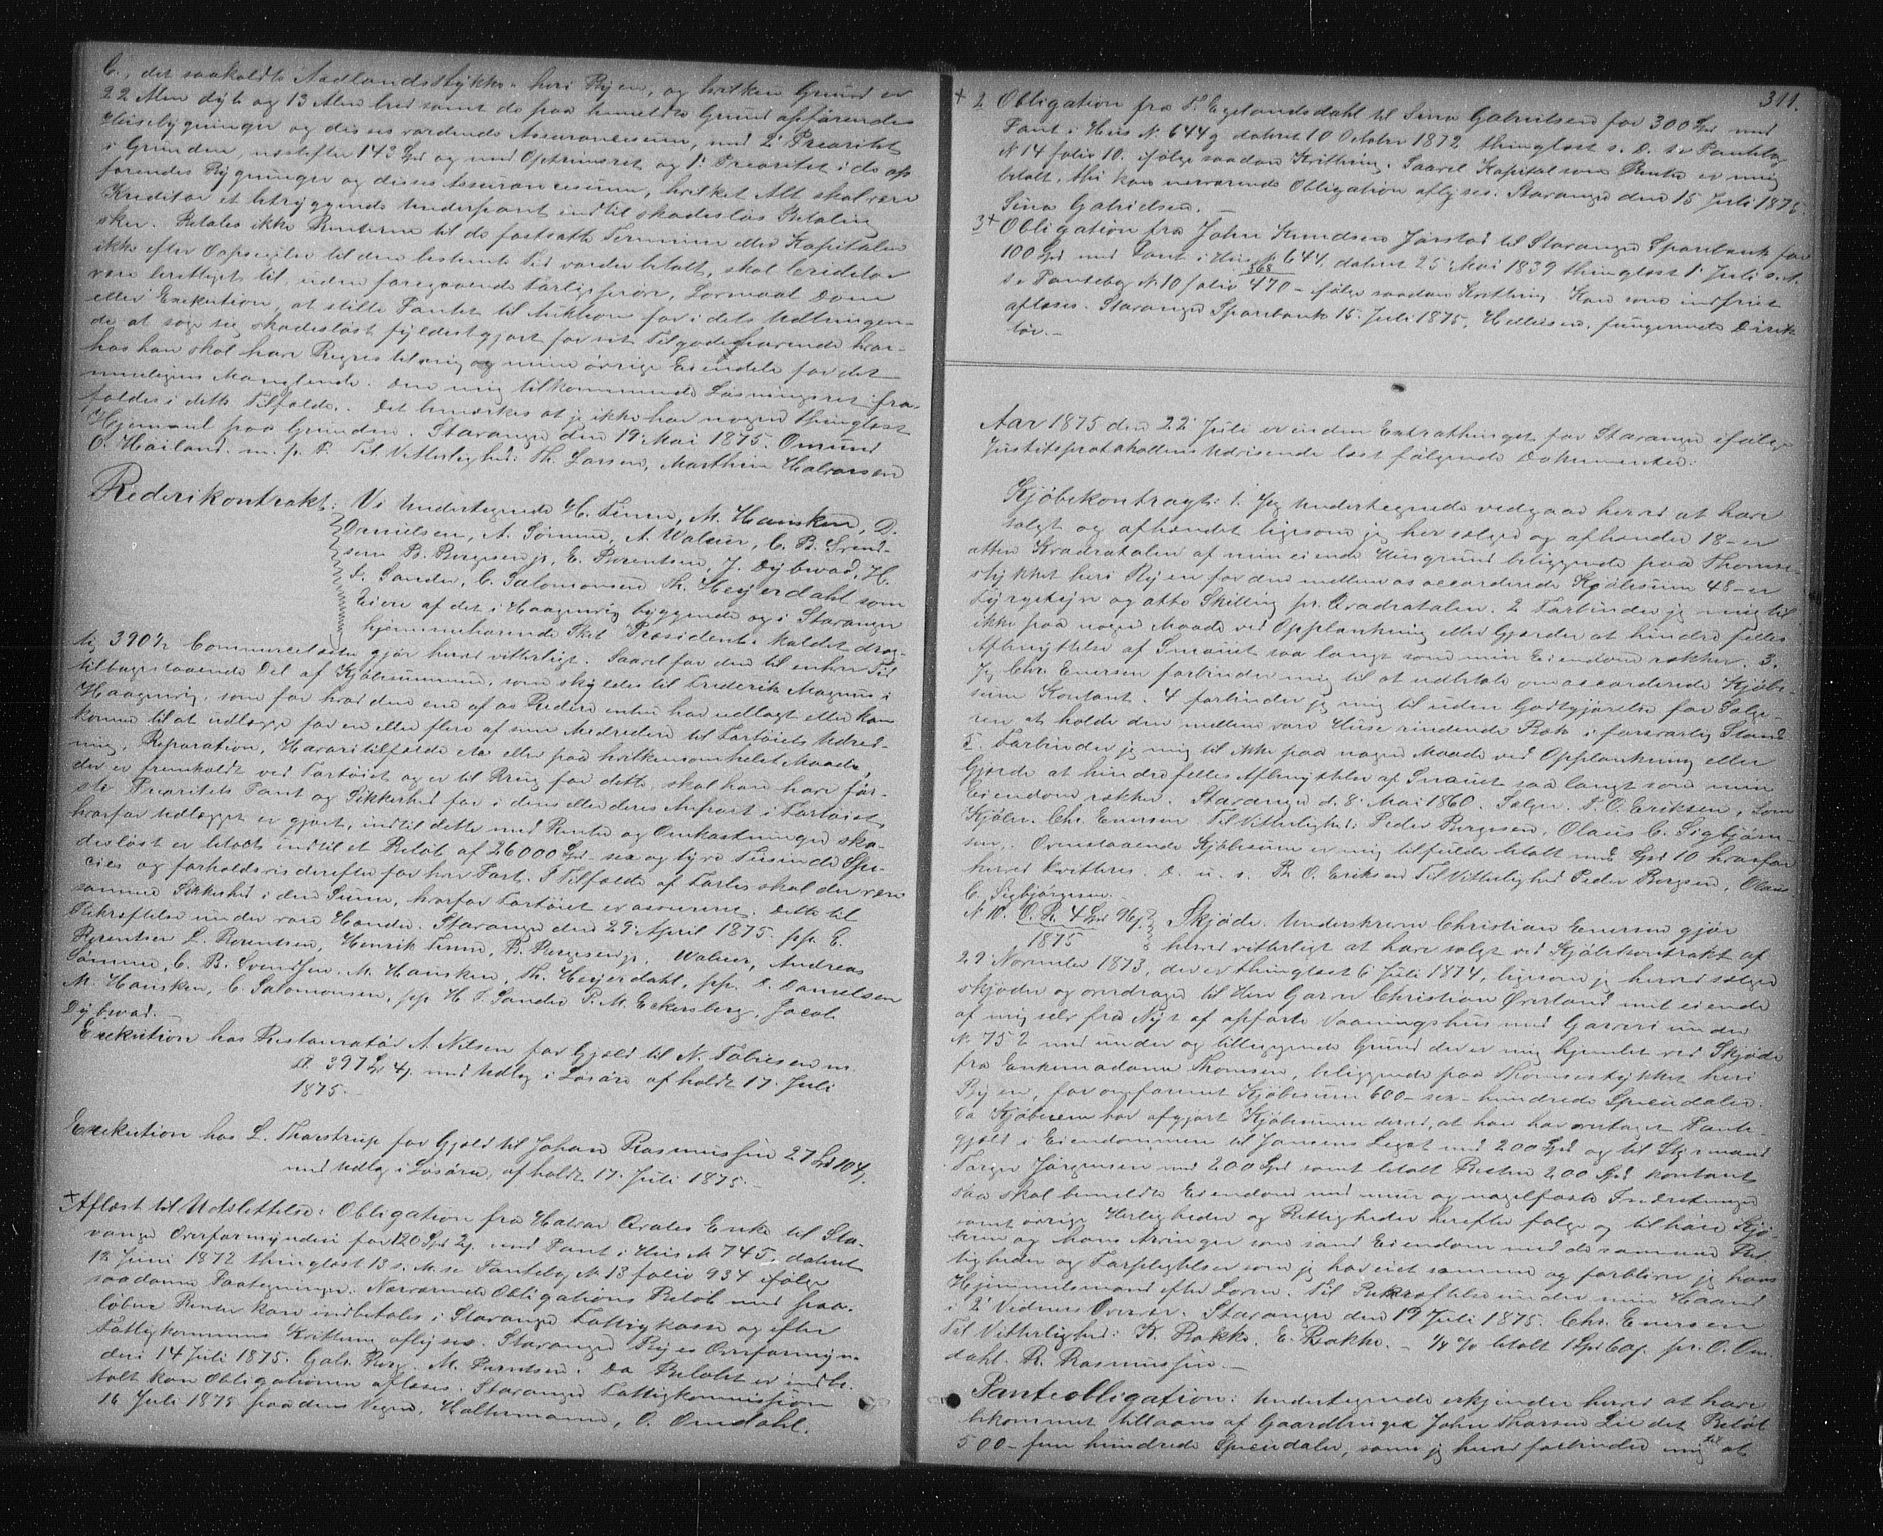 C., det saakaldte Aadlandsstykke heri Byen, og hvilken Grund er
22 Alen dyb og 13 Alen bred samt de paa bemeldte Grund opførendes
Huusbygninger og disses vordende Assurancesum, med 2 Prioritet
i Grunden, næstefter 143 Spd og med Optrinsret og 1 Prioritet i de op
førendes Bygninger og disses Assurancesum, hvilket Alt skal være
Kreditor et betryggende Underpant indtil skadesløs Betaling
sker. Betales ikke Renterne til de fastsatte Terminer eller Kapitalen
ikke efter Opsigelse til den bestemte Tid vorder betalt, skal Creditor
være berettiget til, uden foregaaende Forligsprøve, Lovmaal Dom
eller Execution, at stille Pantet til Auktion for i dets Udbringen-
de at søge sig skadesløst fyldestgjort for sit Tilgodehavende hvor-
hos han skal have Regres til mig og mine øvrige Eiendele for det
muligens Manglende. Den mig tilkommende Løsningsret fra-
faldes i dette Tilfælde. Det bemærkes at jeg ikke har nogen thinglæst
Hjemmel paa Grunden. Stavanger den 19 Mai 1875. Omund
O. Høiland. m. p. P. Til Vitterlighed: Th. Larsen, Marthin Halvorsen
Rederikontrakt: Vi Undertegnede H. Finne, M. Hansken, D.
Danielsen, A. Sømme, A. Walør, C. B. Svend-
sen B. Børgesen jr, E. Berentsen, J. Dybwad, H.
J. Sandes, C. Salomonsen Th. Heyerdahl som
Eiere af det i Haagenvig byggende og i Stavanger
hjemmehørende Skib Præsidente kaldet drag-
tig 390½ Commercelæster gjør herved vitterligt. Saavel for den til enhver Tid
tilbagestaaende Del af Kjøbesummen, som skyldes til Frederik Magnus i
Haagenvig, som for hvad den ene af os Redere enten har udlagt eller kan
komme til at udlægge for en eller flere af sine Medredere til Fartøiets Udred-
ning, Reparation, Havaritilfælde eta eller paa hvilkensomhelst Maade,
der er fremholdt ved Fartøiet og er til Brug for dette, skal han have før-
ste Prioritets Pant og Sikkerhed for i dens eller deres Anpart i Fartøiet
hvorfor Udlægget er gjort, indtil dette med Renter og Omkostninger ska-
desløst er betalt indtil et Beløb af 26000 Spd - sex og tyve Tusinde Spe-
cies og forholdsvis derefter for hver Part. I Tilfælde af Forlis skal der være
samme Sikkerhed i den Summ, hvorfor Fartøiet er assureret. Dette til
Bekræftelse under vore Hænder. Stavanger den 29 April 1875. pp. E.
Berentsen L. Berentsen, Henrik Finne, B. Børgesen jr, Waløer, Andreas
Sømme, C. B. Svendsen. M. Hansken, Th. Heyerdahl, pp. D. Danielsen
M. Hansken, C. Salomonsen, pp H. J. Sandes P. M. Eckersberg, Jacob
Dybwad. -
Exekution hos Restauratør A. Nilsen for Gjæld til N. Tobiesen m.
fl. 397 Spd 4 med Udlæg i Løsøre afholdt 17 Juli
1875. -
Exekution hos L. Thorstrup for Gjæld til Johan Rasmussen 27 Spd 104
med Udlæg i Løsøre, afholdt 17 Juli 1875. -
+ Aflæst til Udslettelse: Obligation fra Halvor Qvales Enke til Sta-
vanger Overformynderi for 120 Spd 24 med Pant i Hus N 745, dateret
12 Juni 1872 thinglæst 13 s. M. se Pantebog N 13 folio 934 ifølge
saadanne Paategninger: Nærværende Obligations Beløb med paa-
løbne Renter kan indbetales i Stavanger Fattigkasse og efter
Fattigkommisions Kvittering aflyses. Stavanger Byes Overformyn-
deri 14 Juli 1875. Gabr. Berg. M. Berentsen. Da Beløbet er indbe-
talt kan Obligationen aflæses. Stavanger Fattigkommission
16 Juli 1875 paa dens Vegne, Haltermann, O. Omdahl.
311.
+ 2 Obligation fra T. Egelandsdahl til Sina Gabrielsen for 300 Spd med
Pant i Hus N. 644g dateret 10 October 1872 thinglæst s. D. se Pantebog
N 14 folio 10. ifølge saadan Kvittering: Saavel Kapital som Rente er mig
betalt, thi kan nærværende Obligation aflyses. Stavanger den 15 Juli 1875
Sina Gabrielsen. -
3 + Obligation fra John Knudsen Jørstad til Stavanger Sparebank for
100 Spd med Pant i Hus N. 644, dateret 25 Mai 1839 thinglæst 1 Juli s. A.
se Pantebog N. 10 folio 368/470 - ifølge saadan Kvittering. Kan som indfriet
aflæses. Stavanger Sparebank 15 Juli 1875, Helliesen, fungerende Direk
tør. -
Aar 1875 den 22 Juli er inden Extrathinget for Stavanger ifølge
Justitsprotokollens Udvisende læst følgende Dokumenter:
Kjøbekontragt: 1. Jeg Undertegnede vedgaar herved at have
solgt og afhændet ligesom jeg her sælger og afhænder 18 - er
atten Kvadratalen af min eiende Husgrund beliggende paa Thomse-
stykket heri Byen for den mellem os accorderede Kjøbesum 48 - er
fyrgetyve og otte Skilling pr. Qvadratalen. 2 Forbinder jeg mig til
ikke paa nogen Maade ved Opplankning eller Gjærder at hindre fælles
Afbenyttelse af Smauet saa langt som min Eiendom rækker. 3.
Jeg Chr. Enersen forbinder mig til at udbetale omaccorderede Kjøbe-
sum Kontant. 4 forbinder jeg mig til uden Godtgjørelse for Sælge-
ren at holde den mellem vore Huse rindende Bæk i forsvarlig Stand
5. Forbinder jeg mig til ikke paa nogen Maade ved Opplankning eller
Gjærde at hindre fælles Afbenyttelse af Smauet saa langt som min
Eiendom rækker. Stavanger d. 8 Mai 1860. Sælger B. O. Eriksen, Som
Kjøber Chr. Enersen Til Vitterlighed: Peder Børgesen, Olaus C. Sigbjørn-
sen. Ovenstaaende Kjøbesum er mig tilfulde betalt med Spd 10 hvorfor
herved kvitteres. D. u. s. B. O. Eriksen Til Vitterlighed Peder Børgesen, Olaus
C. Sigbjørnsen.
N 10. O. R. 4 Spd 96 / 1875 Skjøde. Underskrevne Christian Enersen gjør
herved vitterligt at have solgt ved Kjøbekontrakt af
29 November 1873, der er thinglæst 6 Juli 1874, ligesom jeg herved sælger
skjøder og overdrager til Herr Garver Christian Øverland mit eiende
af mig selv fra Nyt af opførte Vaaningshus med Garveri under
N. 752 med under og tilliggende Grund der er mig hjemlet ved Skjøde
fra Enkemadame Thomsen, beliggende paa Thomsestykket heri
Byen, for omforenet Kjøbesum 600 - sex - hundrede Speciedaler.
Da Kjøberen har afgjort Kjøbesummen derved, at han har overtaget Pante-
gjæld i Eiendommen til Jansens Legat med 200 Spd og til Styrmand
Torger Jørgensen med 200 Spd samt betalt Resten 200 Spd kontant
saa skal bemeldte Eiendom med muur og nagelfaste Indretninger
samt øvrige Herligheder og Rettigheder herefter følge og tilhøre Kjø-
beren og Hans Arvinger som sand Eiendom med de samme Ret-
tigheder og Forpligtelser som jeg har eiet samme og forbliver jeg hans
Hjemmelsmand efter Loven. Til Bekræftelse under min Haand
i 2 Vidners Overvær. Stavanger den 19 Juli 1875. Chr. Enersen
Til Vitterlighed: K. Bakke. E. Bakke. - ¼ % betalt 1 Spd 60 pr. O. Om-
dahl. R. Rasmussen -
Panteobligation: Undertegnede erkjender herved at have
bekommet tillaans af Gaardbruger John Thorsen Lie det Beløb
500 - fem hundrede Speciedaler, som jeg herved forbinder mig til at